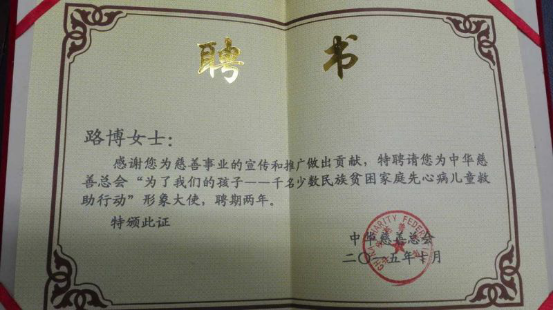 聘 书
路博女士：
感谢您为慈善事业的宣传和推广做出贡献，特聘请您为中华慈
善总会“为了我们的孩子——千名少数民族贫困家庭先心病儿童救
助行动”形象大使，聘期两年。
特颁此证
中华慈善总会
二〇一五年十月
CHINA CHARITY FEDERATION